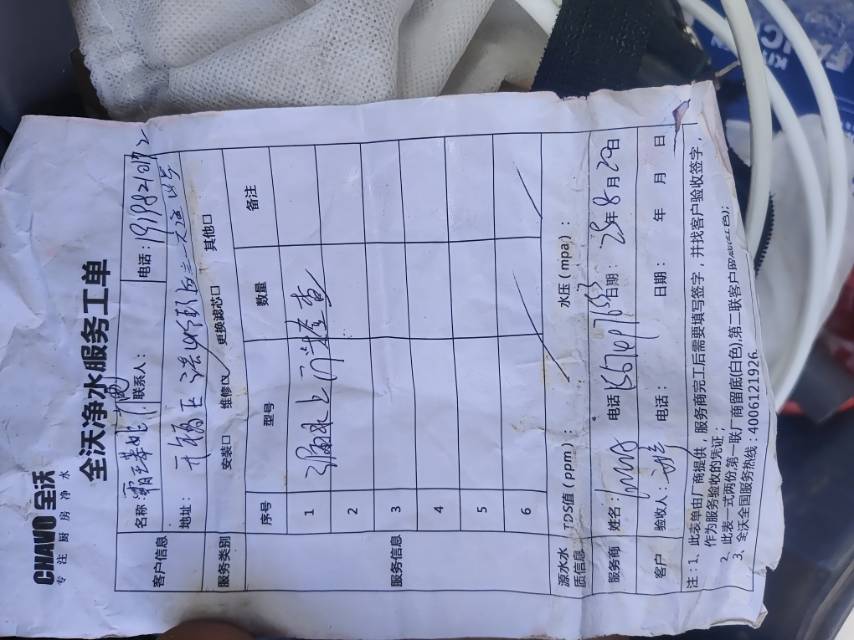 CHAVO 全沃
专注厨房净水
全沃净水服务工单
客户信息 名称: 联系人: 电话:
地址:
服务类别 安装口 维修 更换滤芯口 其他口
服务信息 序号 型号 数量 备注
1 漏水上门检查
2
3
4
5
6
源水水质信息 TDS值(ppm): 水压(mpa):
服务商 姓名: 电话 日期: 25年8月20日
客户 验收人: 电话: 日期: 年 月 日
注:1、此表单由厂商提供,服务商完工后需要填写签字,并找客户验收签字,
作为服务验收的凭证;
2、此表一式两份,第一联厂商留底(白色),第二联客户留底(红色);
3、全沃全国服务热线:4006121926